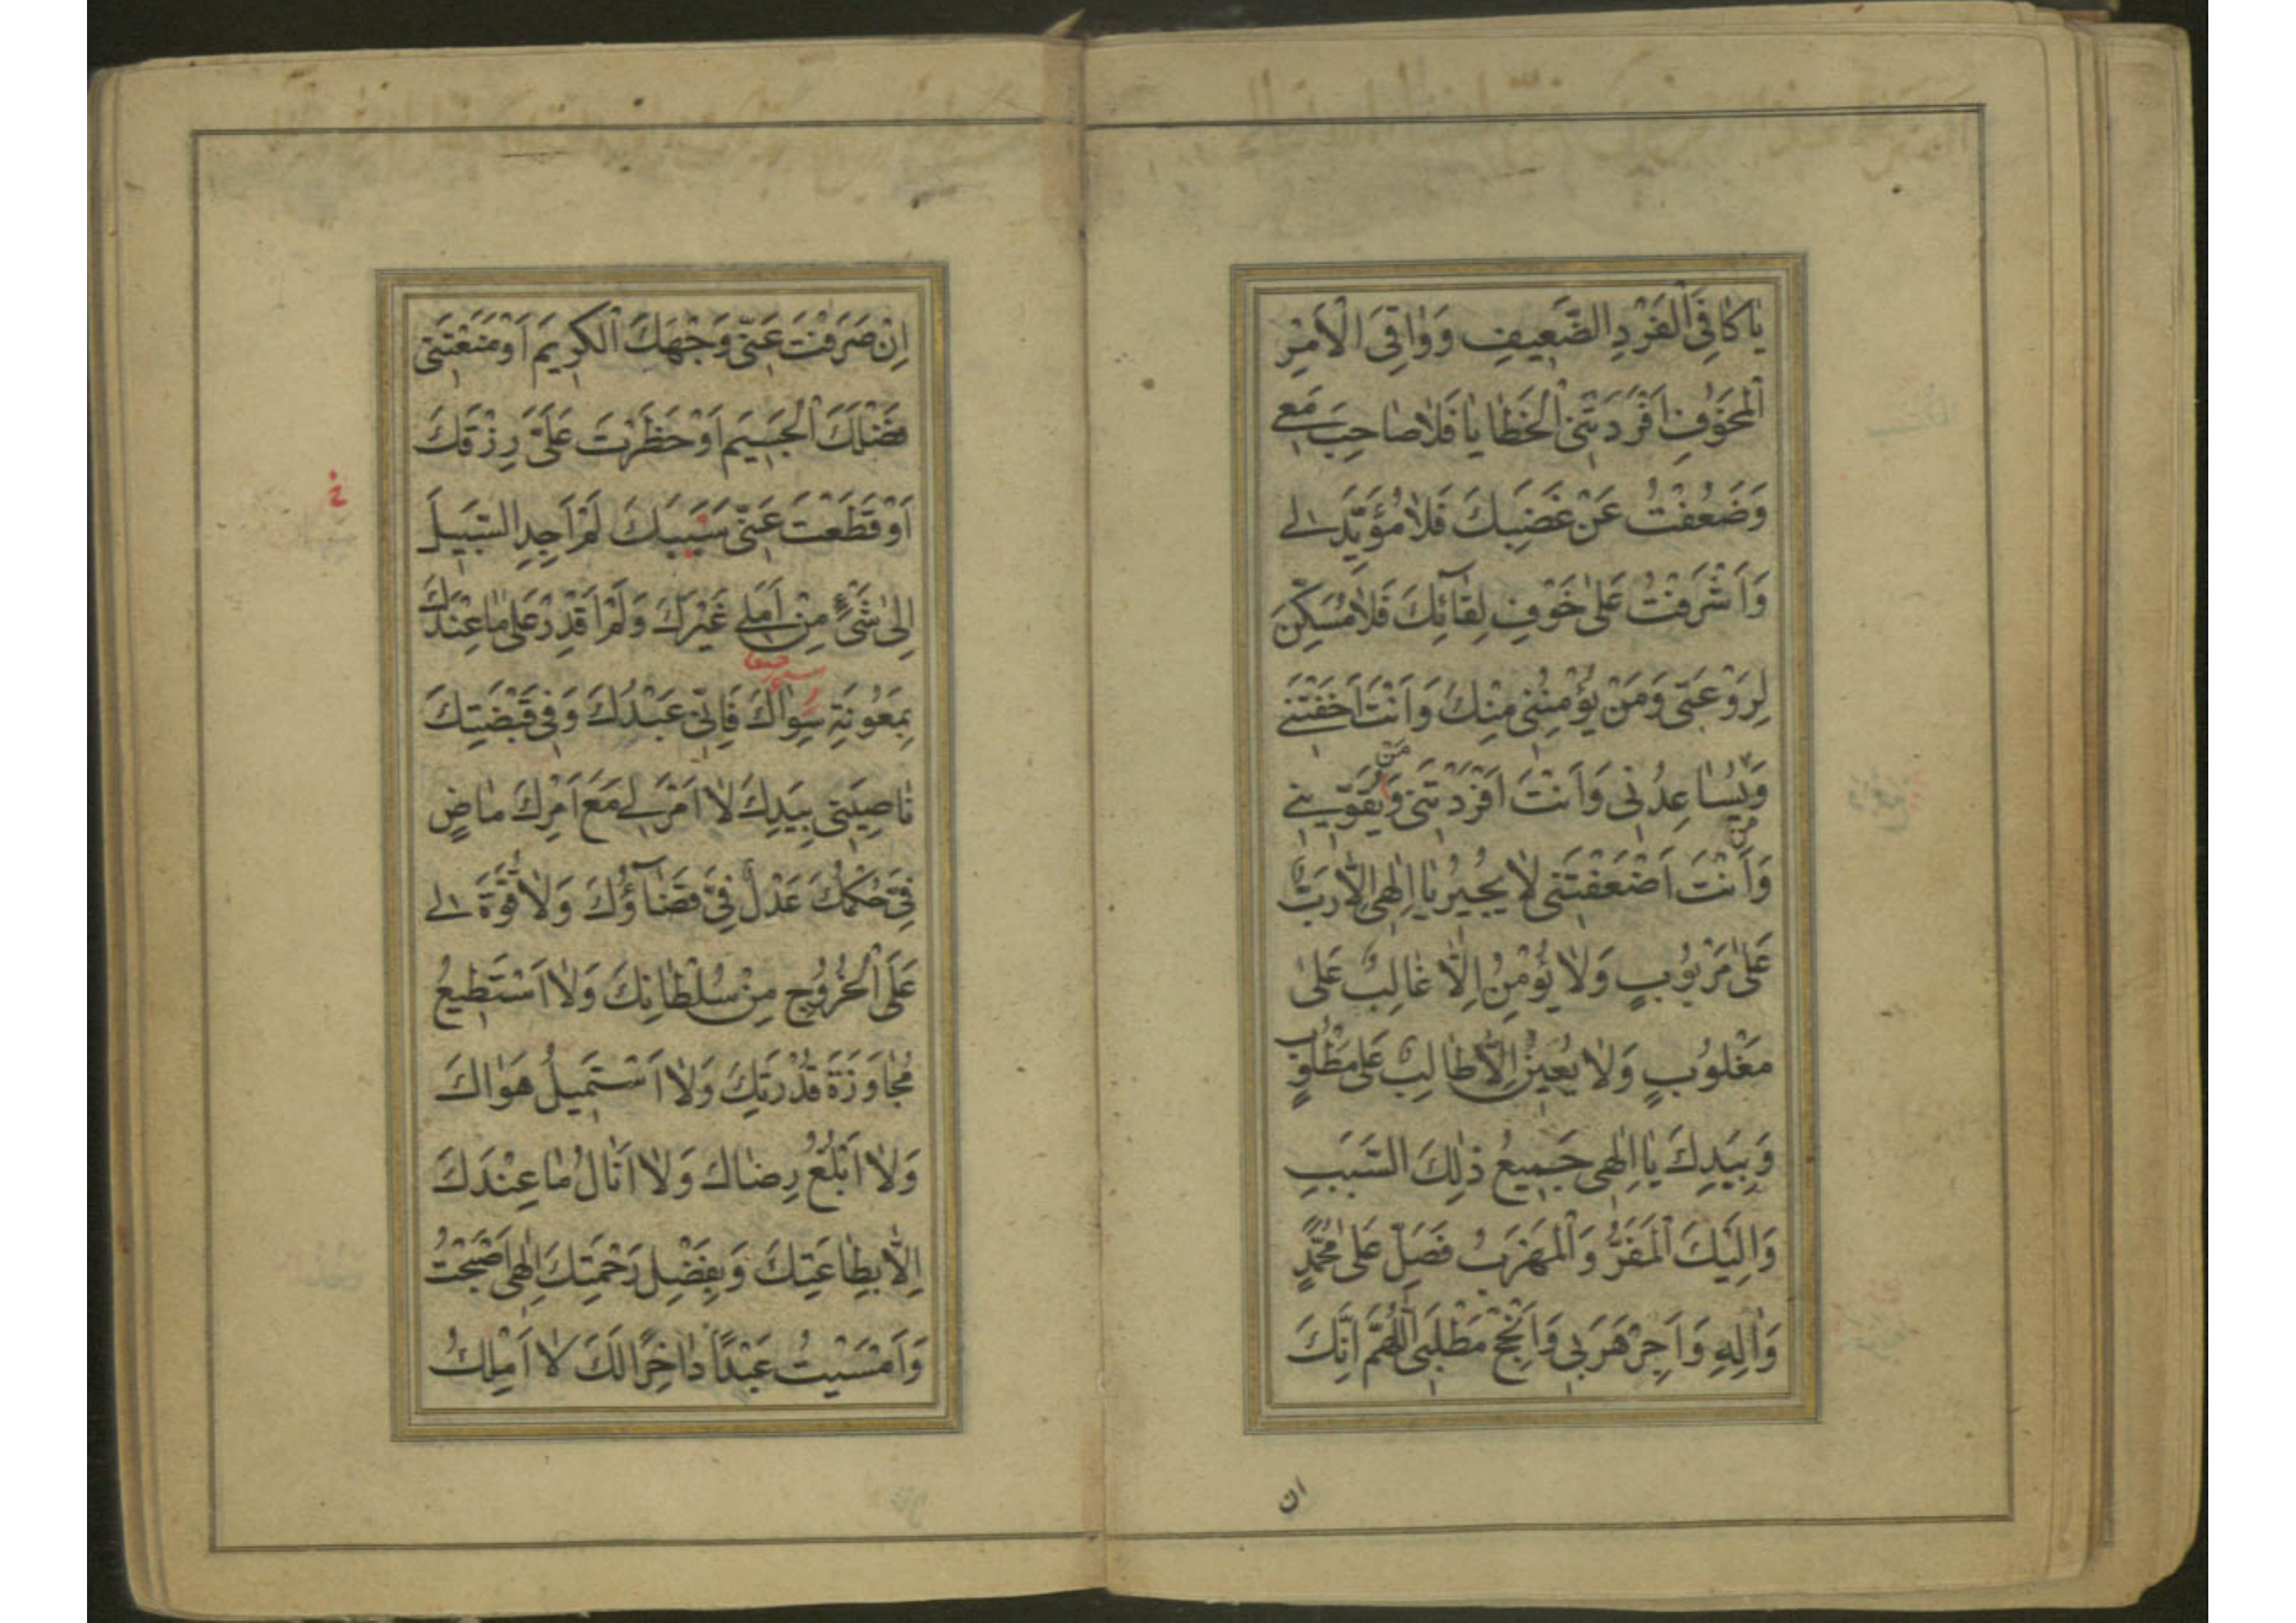 يٰا كٰافِيَ الْفَرْدِ الضَّعِيفِ وَوٰاقِيَ الْاَمْرِ
الْمَخُوْفِ اَفْرَدَتْنِى الْخَطٰايٰا فَلاٰ صٰاحِبَ مَعِى
وَضَعُفْتُ عَنْ غَضَبِكَ فَلاٰ مُؤَيِّدَ لِى
وَاَشْرَفْتُ عَلىٰ خَوْفِ لِقٰآئِكَ فَلاٰ مُسَكِّنَ
لِرَوْعَتِى وَمَنْ يُؤْمِنُنِى مِنْكَ وَاَنْتَ اَخَفْتَنِى
وَيُسٰاعِدُنِى وَاَنْتَ اَفْرَدْتَنِى وَمَنْ يُقَوِّينِى
مَن
وَاَنْتَ اَضْعَفْتَنِى لاٰ يُجِيرُ يٰا اِلٰهِى اِلاّٰ رَبٌّ
عَلىٰ مَرْبُوبٍ وَلاٰ يُؤْمِنُ اِلاّٰ غٰالِبٌ عَلىٰ
مَغْلُوبٍ وَلاٰ يُعِينُ اِلاّٰ طٰالِبٌ عَلىٰ مَطْلُوبٍ
وَبِيَدِكَ يٰا اِلٰهِى جَمِيعُ ذٰلِكَ السَّبَبِ
وَاِلَيْكَ الْمَفَرُّ وَالْمَهْرَبُ فَصَلِّ عَلىٰ مُحَمَّدٍ
وَاٰلِهِ وَاَجِرْ هَرَبِى وَاَنْجِحْ مَطْلَبِى اَللّٰهُمَّ اِنَّكَ
ان
اِنْ صَرَفْتَ عَنِّى وَجْهَكَ الْكَرِيمَ اَوْ مَنَعْتَنِى
فَضْلَكَ الْجَسِيمَ اَوْ حَظَرْتَ عَلَىَّ رِزْقَكَ
اَوْ قَطَعْتَ عَنِّى سَبَبَكَ لَمْ اَجِدِ السَّبِيلَ
خ
اِلىٰ شَىْءٍ مِنْ اَمَلِى غَيْرَكَ وَلَمْ اَقْدِرْ عَلىٰ مٰا عِنْدَكَ
بِمَعُونَةِ سِوٰاكَ فَاِنِّى عَبْدُكَ وَفِى قَبْضَتِكَ
نٰاصِيَتِى بِيَدِكَ لاٰ اَمْرَ لِى مَعَ اَمْرِكَ مٰاضٍ
فِىَّ حُكْمُكَ عَدْلٌ فِىَّ قَضٰآؤُكَ وَلاٰ قُوَّةَ لِى
عَلَى الْخُرُوجِ مِنْ سُلْطٰانِكَ وَلاٰ اَسْتَطِيعُ
مُجٰاوَزَةَ قُدْرَتِكَ وَلاٰ اَسْتَمِيلُ هَوٰاكَ
وَلاٰ اَبْلُغُ رِضٰاكَ وَلاٰ اَنٰالُ مٰا عِنْدَكَ
اِلاّٰ بِطٰاعَتِكَ وَبِفَضْلِ رَحْمَتِكَ اِلٰهِى اَصْبَحْتُ
وَاَمْسَيْتُ عَبْدًا دٰاخِرًا لَكَ لاٰ اَمْلِكُ